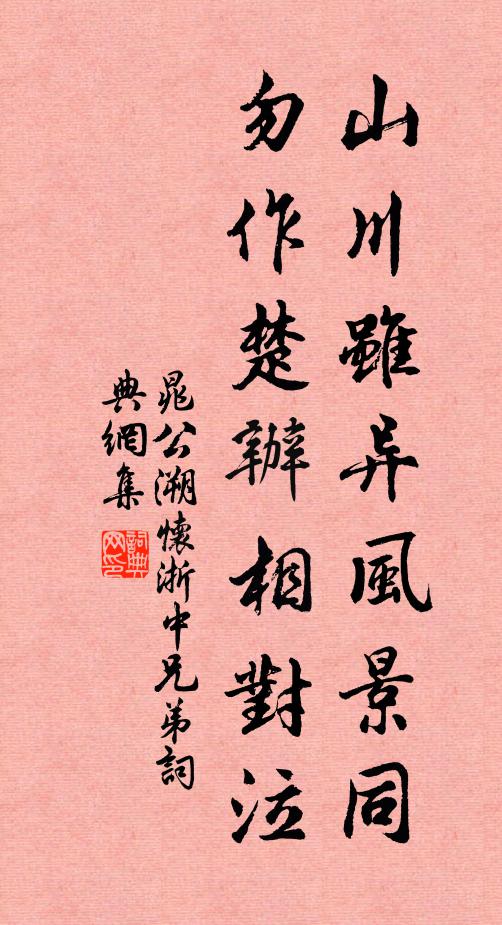 山川雖异風景同
勿作楚辦相對泣
晁公溯懷浙中兄弟詞
典網集
詞典
网印